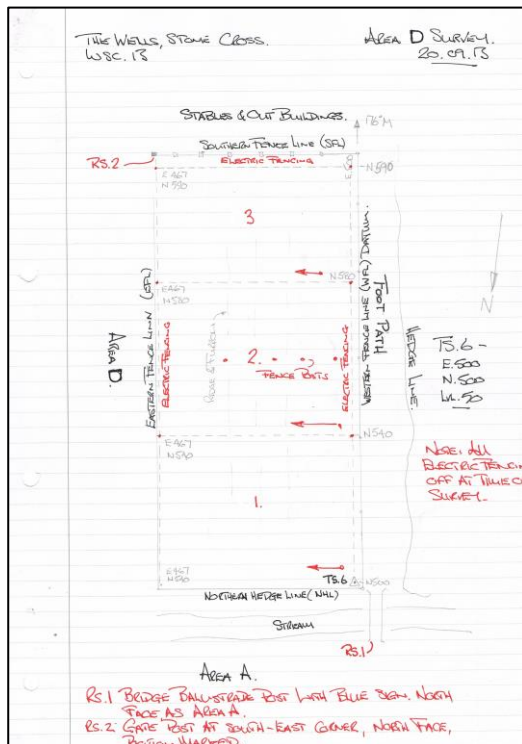 THE WELLS, STONE CROSS.
WSC.13
AREA D SURVEY.
20.09.13
STABLES & OUT BUILDINGS.
176°M
SOUTHERN FENCE LINE (SFL)
RS.2
ELECTRIC FENCING
N590
E467
N590
3
N560
E467
N560
EASTERN FENCE LINN (EFL)
ELECTRIC FENCING
AREA D.
RIDGE & FURROW
2.
FENCE POSTS
ELECTRIC FENCING
WESTERN FENCE LINE (WFL) DATUM.
FOOT PATH
HEDGE LINE.
N
TS.6 -
E.500
N.500
LVL.50
N540
E467
N540
NOTE: ALL
ELECTRIC FENCING
OFF AT TIME OF
SURVEY.
1.
E467
TS.6
N500
NORTHERN HEDGE LINE (NHL)
STREAM
RS.1
AREA A.
RS.1 BRIDGE BALLUSTRADE POST WITH BLUE SIGN. NORTH
FACE AS AREA A.
RS.2 GATE POST AT SOUTH-EAST CORNER, NORTH FACE,